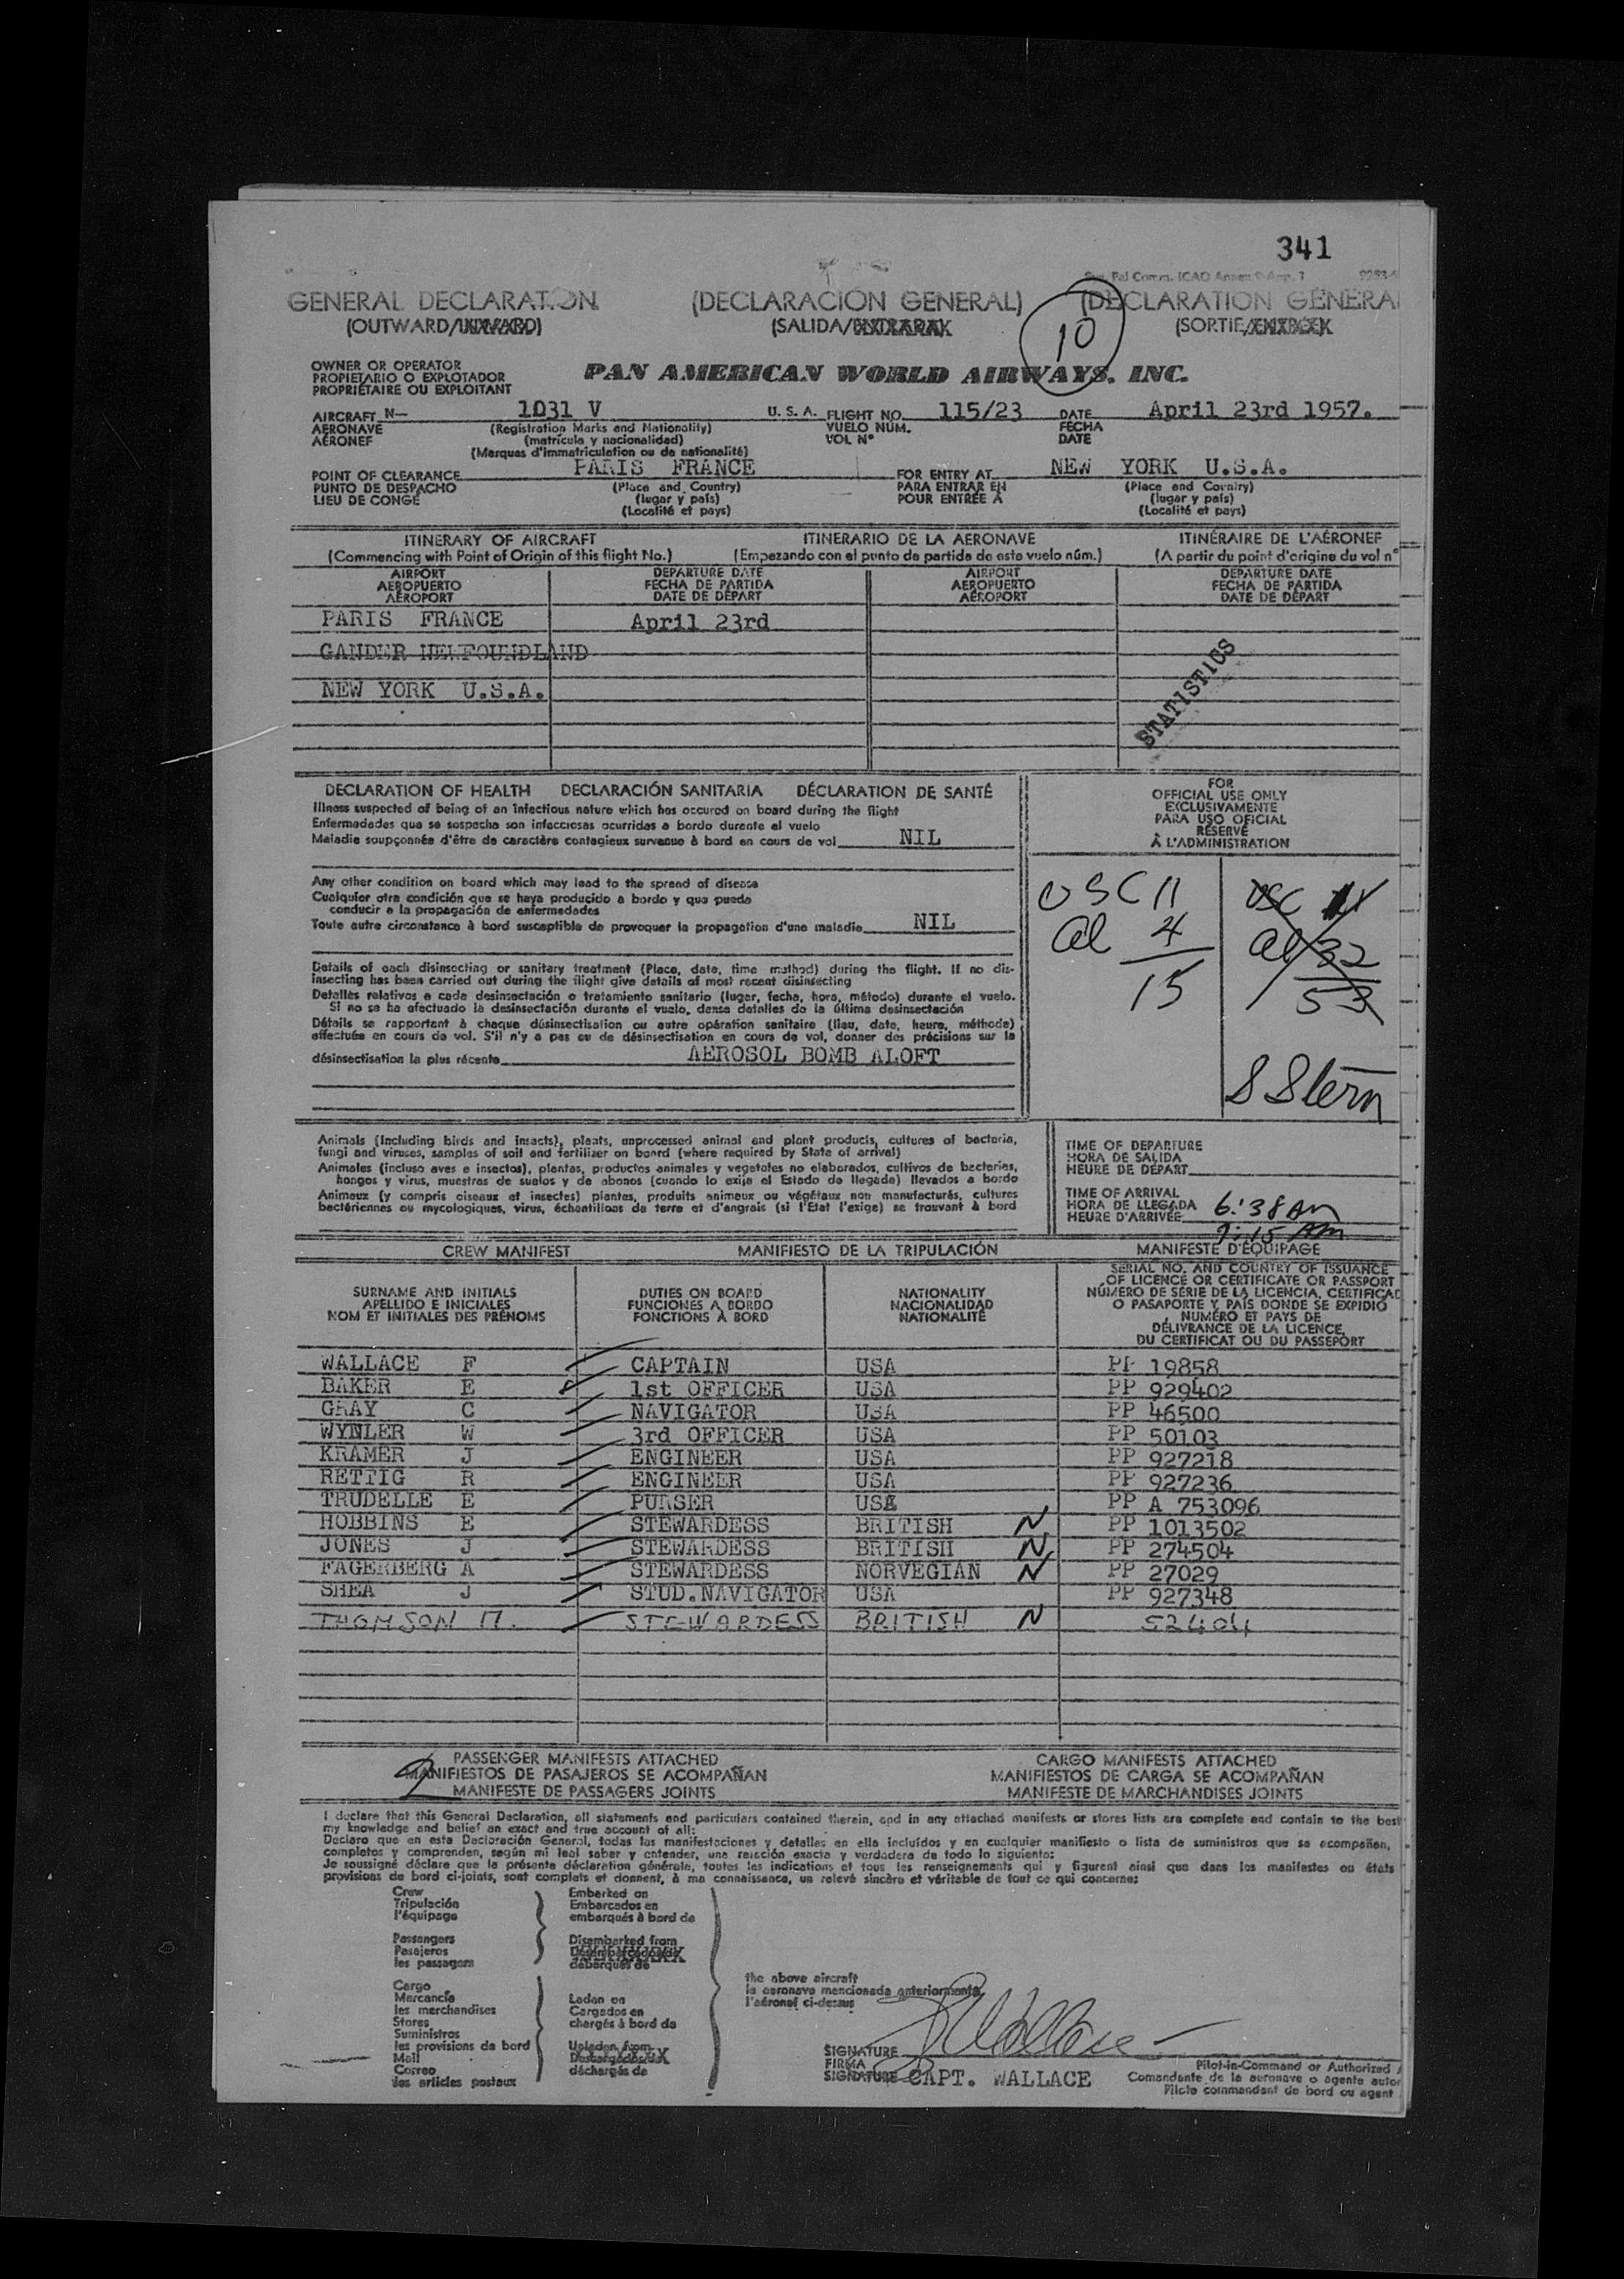 341
GENERAL DECLARATION (DECLARACIÓN GENERAL) (DECLARATION GÉNÉRA
(OUTWARD/ (SALIDA/ (SORTIE/
10
OWNER OR OPERATOR
PROPIETARIO O EXPLOTADOR
PROPRIÉTAIRE OU EXPLOITANT
PAN AMERICAN WORLD AIRWAYS, INC.
AIRCRAFT N— 1031 V U. S. A. FLIGHT NO. 115/23 DATE April 23rd 1957.
AERONAVE (Registration Marks and Nationality) VUELO NÚM. FECHA
AÉRONEF (matrícula y nacionalidad) VOL Nº DATE
(Marques d'immatriculation ou de nationalité)
POINT OF CLEARANCE PARIS FRANCE FOR ENTRY AT NEW YORK U.S.A.
PUNTO DE DESPACHO (Place and Country) PARA ENTRAR EN (Place and Country)
LIEU DE CONGÉ (lugar y país) POUR ENTRÉE À (lugar y país)
(Localité et pays) (Localité et pays)
ITINERARY OF AIRCRAFT ITINERARIO DE LA AERONAVE ITINÉRAIRE DE L'AÉRONEF
(Commencing with Point of Origin of this flight No.) (Empezando con el punto de partida de este vuelo núm.) (A partir du point d'origine du vol nº
AIRPORT DEPARTURE DATE AIRPORT DEPARTURE DATE
AEROPUERTO FECHA DE PARTIDA AEROPUERTO FECHA DE PARTIDA
AÉROPORT DATE DE DÉPART AÉROPORT DATE DE DÉPART
PARIS FRANCE April 23rd
GANDER NEWFOUNDLAND
NEW YORK U.S.A.
STATISTICS
DECLARATION OF HEALTH DECLARACIÓN SANITARIA DÉCLARATION DE SANTÉ
Illness suspected of being of an infectious nature which has occured on board during the flight
Enfermedades que se sospecha son infecciosas ocurridas a bordo durante el vuelo
Maladie soupçonnée d'être de caractère contagieux survenue à bord en cours de vol NIL
Any other condition on board which may lead to the spread of disease
Cualquier otra condición que se haya producido a bordo y que pueda
conducir a la propagación de enfermedades
Toute autre circonstance à bord susceptible de provoquer la propagation d'une maladie NIL
Details of each disinsecting or sanitary treatment (Place, date, time method) during the flight. If no dis-
insecting has been carried out during the flight give details of most recent disinsecting
Detalles relativos a cada desinsectación o tratamiento sanitario (lugar, fecha, hora, método) durante el vuelo.
Si no se ha efectuado la desinsectación durante el vuelo, dense detalles de la última desinsectación
Détails se rapportant à chaque désinsectisation ou autre opération sanitaire (lieu, date, heure, méthode)
effectuée en cours de vol. S'il n'y a pas eu de désinsectisation en cours de vol, donner des précisions sur la
désinsectisation la plus récente AEROSOL BOMB ALOFT
FOR
OFFICIAL USE ONLY
EXCLUSIVAMENTE
PARA USO OFICIAL
RÉSERVÉ
À L'ADMINISTRATION
USC 11
al 4
15
USC
al 32
53
S Stern
Animals (Including birds and insects), plants, unprocessed animal and plant products, cultures of bacteria,
fungi and viruses, samples of soil and fertilizer on board (where required by State of arrival)
Animales (incluso aves e insectos), plantas, productos animales y vegetales no elaborados, cultivos de bacterias,
hongos y virus, muestras de suelos y de abonos (cuando lo exija el Estado de llegada) llevados a bordo
Animaux (y compris oiseaux et insectes) plantes, produits animaux ou végétaux non manufacturés, cultures
bactériennes ou mycologiques, virus, échantillons de terre et d'engrais (si l'État l'exige) se trouvant à bord
TIME OF DEPARTURE
HORA DE SALIDA
HEURE DE DÉPART
TIME OF ARRIVAL
HORA DE LLEGADA 6:38 AM
HEURE D'ARRIVÉE 9:15 AM
CREW MANIFEST MANIFIESTO DE LA TRIPULACIÓN MANIFESTE D'ÉQUIPAGE
SURNAME AND INITIALS
APELLIDO E INICIALES
NOM ET INITIALES DES PRÉNOMS
DUTIES ON BOARD
FUNCIONES A BORDO
FONCTIONS À BORD
NATIONALITY
NACIONALIDAD
NATIONALITÉ
SERIAL NO. AND COUNTRY OF ISSUANCE
OF LICENCE OR CERTIFICATE OR PASSPORT
NÚMERO DE SERIE DE LA LICENCIA, CERTIFICAD
O PASAPORTE Y PAÍS DONDE SE EXPIDIÓ
NUMÉRO ET PAYS DE
DÉLIVRANCE DE LA LICENCE,
DU CERTIFICAT OU DU PASSEPORT
WALLACE F CAPTAIN USA PP 19858
BAKER E 1st OFFICER USA PP 929402
GRAY C NAVIGATOR USA PP 46500
WYNLER W 3rd OFFICER USA PP 50103
KRAMER J ENGINEER USA PP 927218
RETTIG R ENGINEER USA PP 927236
TRUDELLE E PURSER USA PP A 753096
HOBBINS E STEWARDESS BRITISH N PP 1013502
JONES J STEWARDESS BRITISH N PP 274504
FAGERBERG A STEWARDESS NORVEGIAN N PP 27029
SHEA J STUD.NAVIGATOR USA PP 927348
THOMSON STEWARDESS BRITISH N 52404
2
PASSENGER MANIFESTS ATTACHED CARGO MANIFESTS ATTACHED
MANIFIESTOS DE PASAJEROS SE ACOMPAÑAN MANIFIESTOS DE CARGA SE ACOMPAÑAN
MANIFESTE DE PASSAGERS JOINTS MANIFESTE DE MARCHANDISES JOINTS
I declare that this General Declaration, all statements and particulars contained therein, and in any attached manifests or stores lists are complete and contain to the best
my knowledge and belief an exact and true account of all:
Declaro que en esta Declaración General, todas las manifestaciones y detalles en ella incluídos y en cualquier manifiesto o lista de suministros que se acompañan,
completos y comprenden, según mi leal saber y entender, una relación exacta y verdadera de todo lo siguiente:
Je soussigné déclare que la présente déclaration générale, toutes les indications et tous les renseignements qui y figurent ainsi que dans les manifestes ou états
provisions de bord ci-joints, sont complets et donnent, à ma connaissance, un relevé sincère et véritable de tout ce qui concerne:
Crew Embarked on
Tripulación Embarcados en
l'équipage embarqués à bord de
Passengers Disembarked from
Pasajeros Desembarcados de
les passagers débarqués de
Cargo
Mercancía Laden on
les merchandises Cargados en
Stores chargés à bord de
Suministros
les provisions de bord Unladen from
Mail Descargados de
Correo déchargés de
les articles postaux
the above aircraft
la aeronave mencionada anteriormente
l'aéronef ci-dessus
SIGNATURE Wallace
FIRMA
SIGNATURE CAPT. WALLACE
Pilot-in-Command or Authorized
Comandante de la aeronave o agente autor
Pilote commandant de bord ou agent